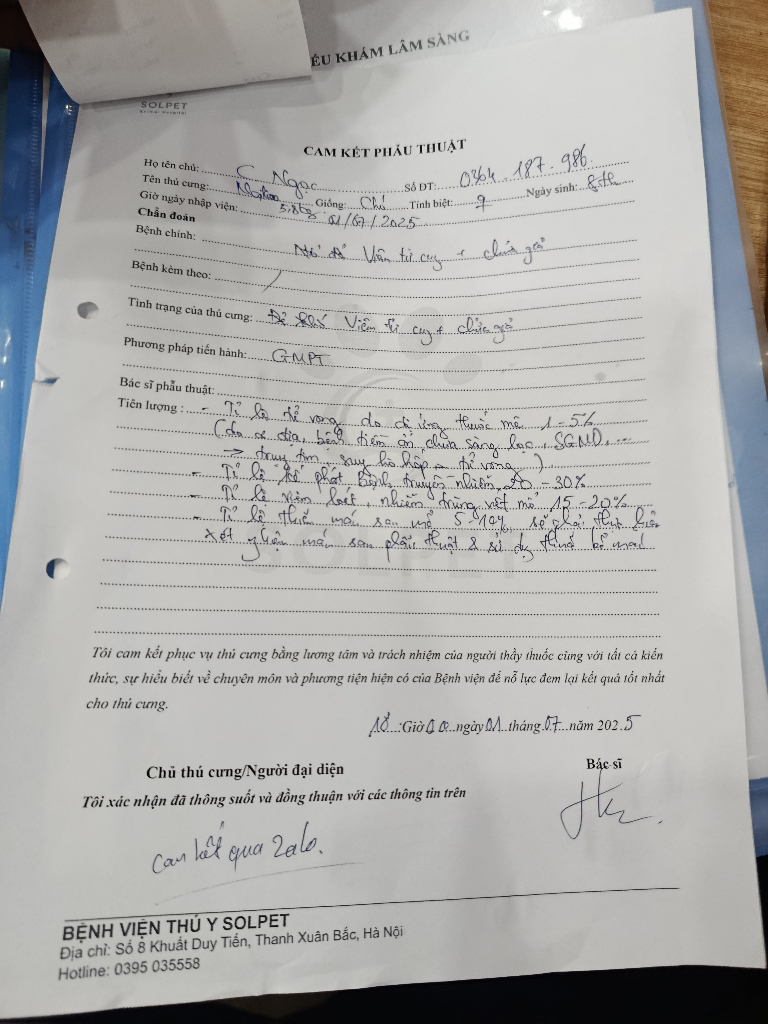 ẾU KHÁM LÂM SÀNG
SOLPET
Animal Hospital
CAM KẾT PHẪU THUẬT
Họ tên chủ: C Ngọc Số ĐT: 0364.187.986
Tên thú cưng: Giống: Chó Tính biệt: ♀ Ngày sinh: 8 th
Giờ ngày nhập viện: 5,8kg 01/07/2025
Chẩn đoán
Bệnh chính: Viêm tử cung + chửa giả
Bệnh kèm theo: /
Tình trạng của thú cưng: Viêm tử cung + chửa giả
Phương pháp tiến hành: GMPT
Bác sĩ phẫu thuật:
Tiên lượng : - Tỉ lệ tử vong do dị ứng thuốc mê 1-5%
(do cơ địa, bệnh tiềm ẩn, chưa sàng lọc, SGMD, ...
→ truy tim, suy hô hấp → tử vong)
- Tỉ lệ kế phát bệnh truyền nhiễm 20-30%
- Tỉ lệ viêm loét, nhiễm trùng vết mổ 15-20%
- Tỉ lệ thiếu máu sau mổ 5-10%, sẽ phải thực hiện
xét nghiệm máu sau phẫu thuật & sử dụng thuốc bổ máu
Tôi cam kết phục vụ thú cưng bằng lương tâm và trách nhiệm của người thầy thuốc cùng với tất cả kiến
thức, sự hiểu biết về chuyên môn và phương tiện hiện có của Bệnh viện để nỗ lực đem lại kết quả tốt nhất
cho thú cưng.
18 :Giờ 00 ngày 01 tháng 07 năm 2025
Chủ thú cưng/Người đại diện Bác sĩ
Tôi xác nhận đã thông suốt và đồng thuận với các thông tin trên
Cam kết qua Zalo.
BỆNH VIỆN THÚ Y SOLPET
Địa chỉ: Số 8 Khuất Duy Tiến, Thanh Xuân Bắc, Hà Nội
Hotline: 0395 035558